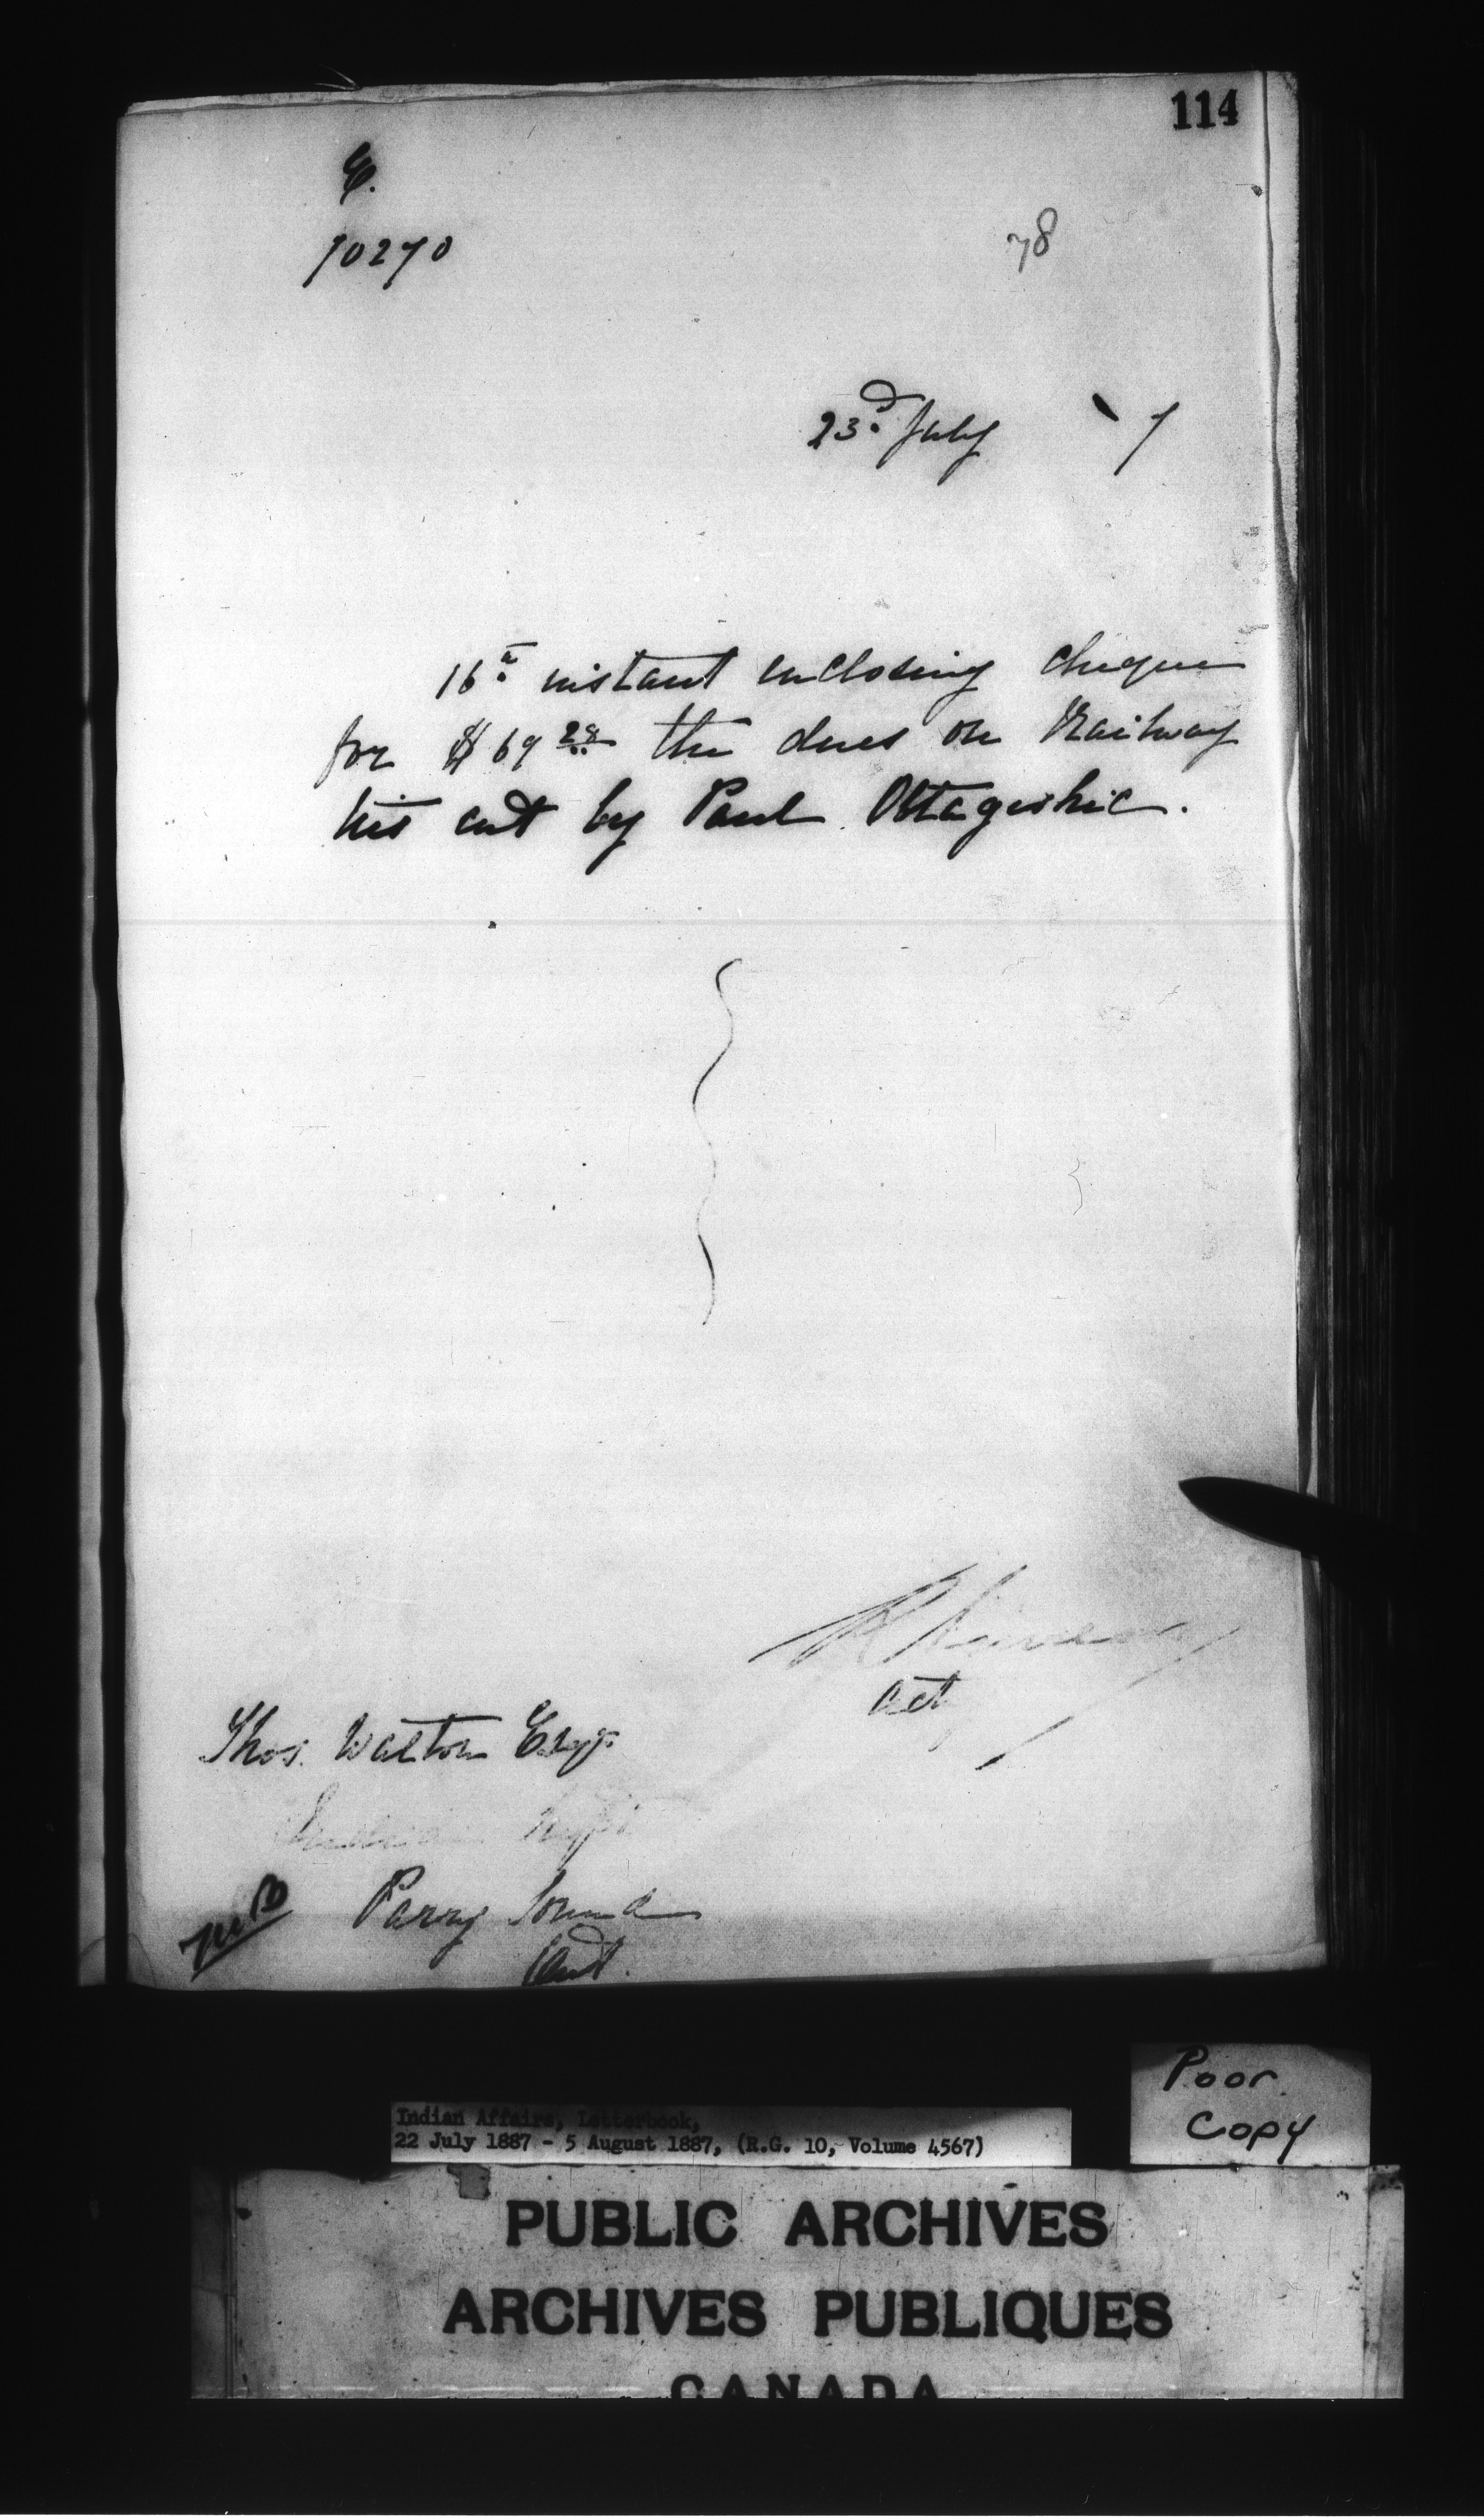 114
E.
70270
78
23d. July 7
16th instant enclosing cheque
for $69 28 the dues on Railway
ties cut by Paul Ottagishic.
Act
Thos. Walton Esqr.
Indian Supt
Parry Sound
Ont.
Poor
Copy
Indian Affairs, Letterbook,
22 July 1887 - 5 August 1887, (R.G. 10, Volume 4567)
PUBLIC ARCHIVES
ARCHIVES PUBLIQUES
CANADA